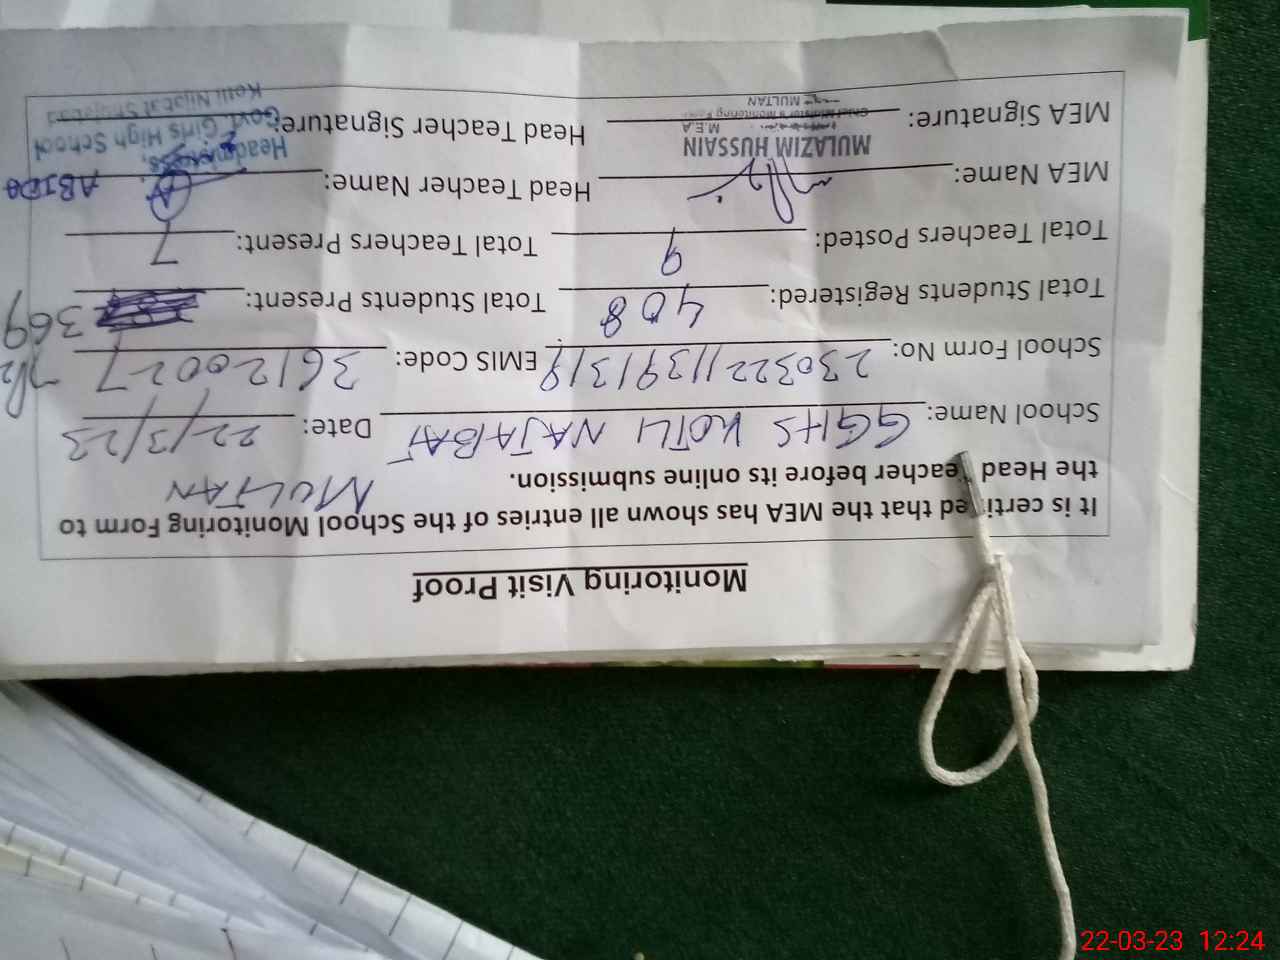 Monitoring Visit Proof
It is certified that the MEA has shown all entries of the School Monitoring Form to
the Head Teacher before its online submission. MULTAN
School Name: GGHS KOTLI NAJABAT Date: 22/3/23
School Form No: EMIS Code: 36120027
Total Students Registered: 408 Total Students Present: 369
Total Teachers Posted: 9 Total Teachers Present: 7
MEA Name: Head Teacher Name:
MULAZIM HUSSAIN
M.E.A
Chief Minister's Monitoring Force
MULTAN
MEA Signature: Head Teacher Signature:
Headmistress,
Govt. Girls High School
Kotli Nijabat Shujabad
22-03-23 12:24